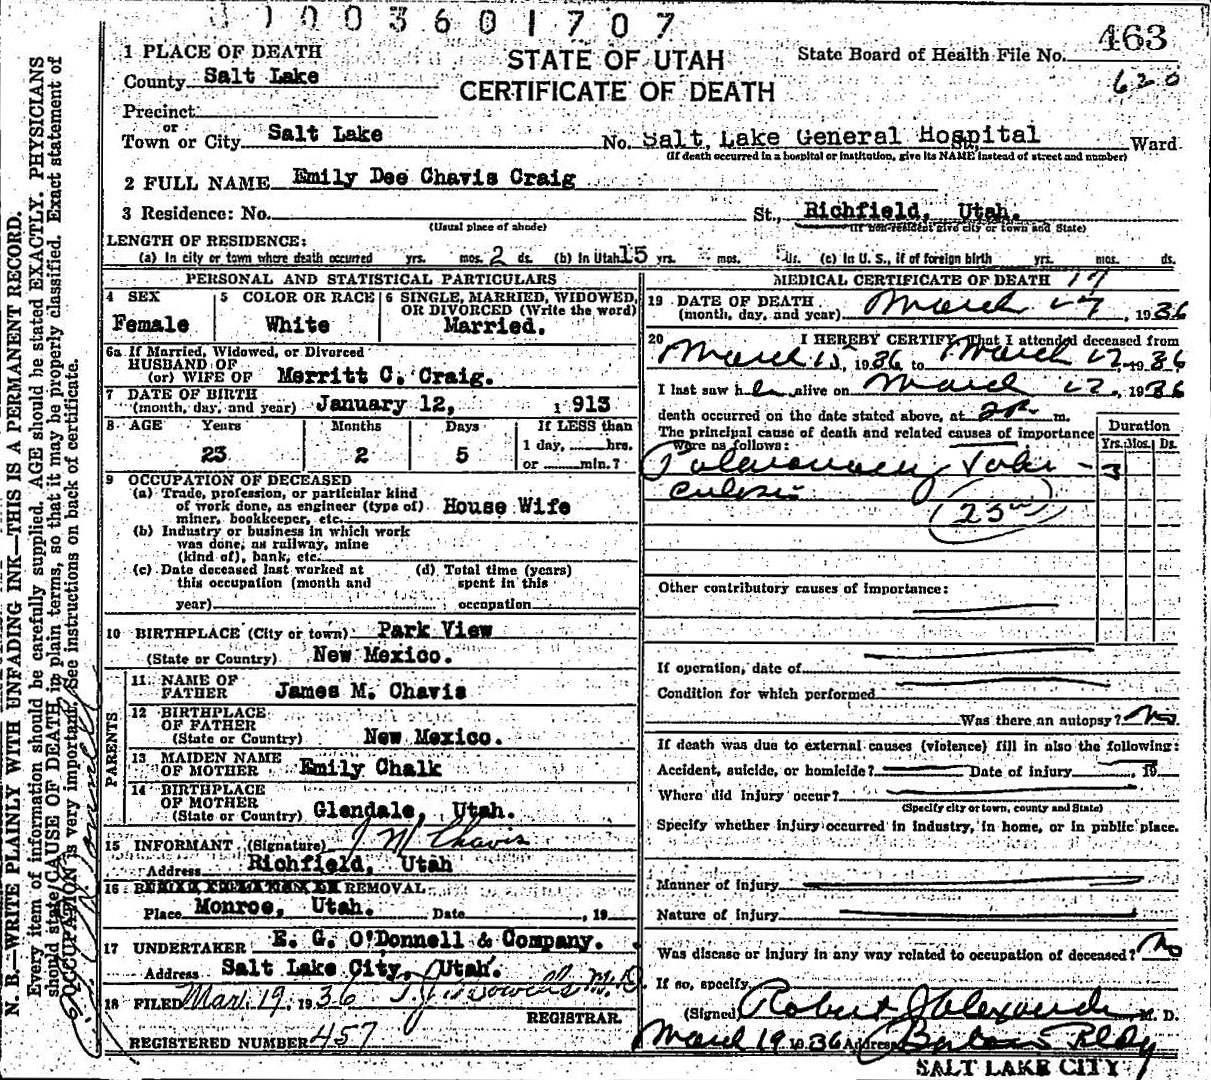 1003601707
1 PLACE OF DEATH
STATE OF UTAH
State Board of Health File No. 463
County Salt Lake
CERTIFICATE OF DEATH
620
Precinct
or
Town or City Salt Lake No. Salt Lake General Hospital St., Ward
(If death occurred in a hospital or institution, give its NAME instead of street and number)
2 FULL NAME Emily Dee Chavis Craig
3 Residence: No. St., Richfield, Utah.
(Usual place of abode) (If non-resident give city or town and State)
LENGTH OF RESIDENCE:
(a) In city or town where death occurred yrs. mos. 2 ds. (b) In Utah 15 yrs. mos. ds. (c) In U. S., if of foreign birth yrs. mos. ds.
PERSONAL AND STATISTICAL PARTICULARS
4 SEX Female
5 COLOR OR RACE White
6 SINGLE, MARRIED, WIDOWED, OR DIVORCED (Write the word) Married.
6a If Married, Widowed, or Divorced
HUSBAND OF
(or) WIFE OF Merritt C. Craig.
7 DATE OF BIRTH
(month, day, and year) January 12, 1913
8 AGE Years Months Days If LESS than
1 day, hrs.
23 2 5 or min.?
9 OCCUPATION OF DECEASED
(a) Trade, profession, or particular kind
of work done, as engineer (type of) House Wife
miner, bookkeeper, etc.
(b) Industry or business in which work
was done, as railway, mine
(kind of), bank, etc.
(c) Date deceased last worked at (d) Total time (years)
this occupation (month and spent in this
year) occupation
10 BIRTHPLACE (City or town) Park View
(State or Country) New Mexico.
PARENTS
11 NAME OF
FATHER James M. Chavis
12 BIRTHPLACE
OF FATHER
(State or Country) New Mexico.
13 MAIDEN NAME
OF MOTHER Emily Chalk
14 BIRTHPLACE
OF MOTHER
(State or Country) Glendale, Utah.
15 INFORMANT (Signature) J M Chavis
Address Richfield, Utah
16 REMOVAL
Place Monroe, Utah. Date , 19
17 UNDERTAKER E. G. O'Donnell & Company.
Address Salt Lake City, Utah.
18 FILED Mar. 19, 1936 M.D.
REGISTRAR.
REGISTERED NUMBER 457
MEDICAL CERTIFICATE OF DEATH 17
19 DATE OF DEATH
(month, day, and year) March 17, 1936
20 I HEREBY CERTIFY, That I attended deceased from
March 15, 1936 to March 17, 1936
I last saw her alive on March 17, 1936
death occurred on the date stated above, at 2P. m.
The principal cause of death and related causes of importance
were as follows:
Duration
Yrs. Mos. Ds.
Pulmonary Tuber- 3
culosis
23
Other contributory causes of importance:
If operation, date of
Condition for which performed
Was there an autopsy? No
If death was due to external causes (violence) fill in also the following:
Accident, suicide, or homicide? Date of injury , 19
Where did injury occur?
(Specify city or town, county and State)
Specify whether injury occurred in industry, in home, or in public place.
Manner of injury
Nature of injury
Was disease or injury in any way related to occupation of deceased? No
If so, specify
(Signed) Robert J Alexander, M. D.
March 19 1936 Address Bldg
SALT LAKE CITY
N. B.—WRITE PLAINLY WITH UNFADING INK—THIS IS A PERMANENT RECORD.
Every item of information should be carefully supplied. AGE should be stated EXACTLY. PHYSICIANS
should state CAUSE OF DEATH in plain terms, so that it may be properly classified. Exact statement of
OCCUPATION is very important. See instructions on back of certificate.